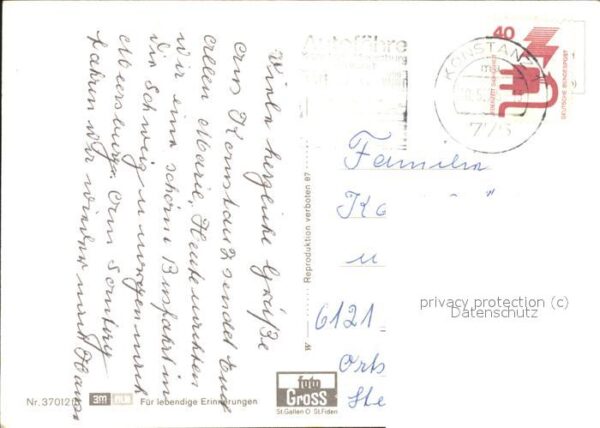 Viele herzliche Grüße
aus Konstanz sendet Euch
allen Marie, Heute machten
wir eine schöne Busfahrt in
die Schweiz u. morgen nach
Meersburg. Am Sonntag
fahren wir wieder nach Hause
Autofähre
KONSTANZ
775
40
DEUTSCHE BUNDESPOST
Familie
Ko
u
6121
Orts
Ste
Reproduktion verboten 87
privacy protection (c)
Datenschutz
foto
Gross
St.Gallen O St.Fiden
Nr. 370121
3M
Für lebendige Erinnerungen